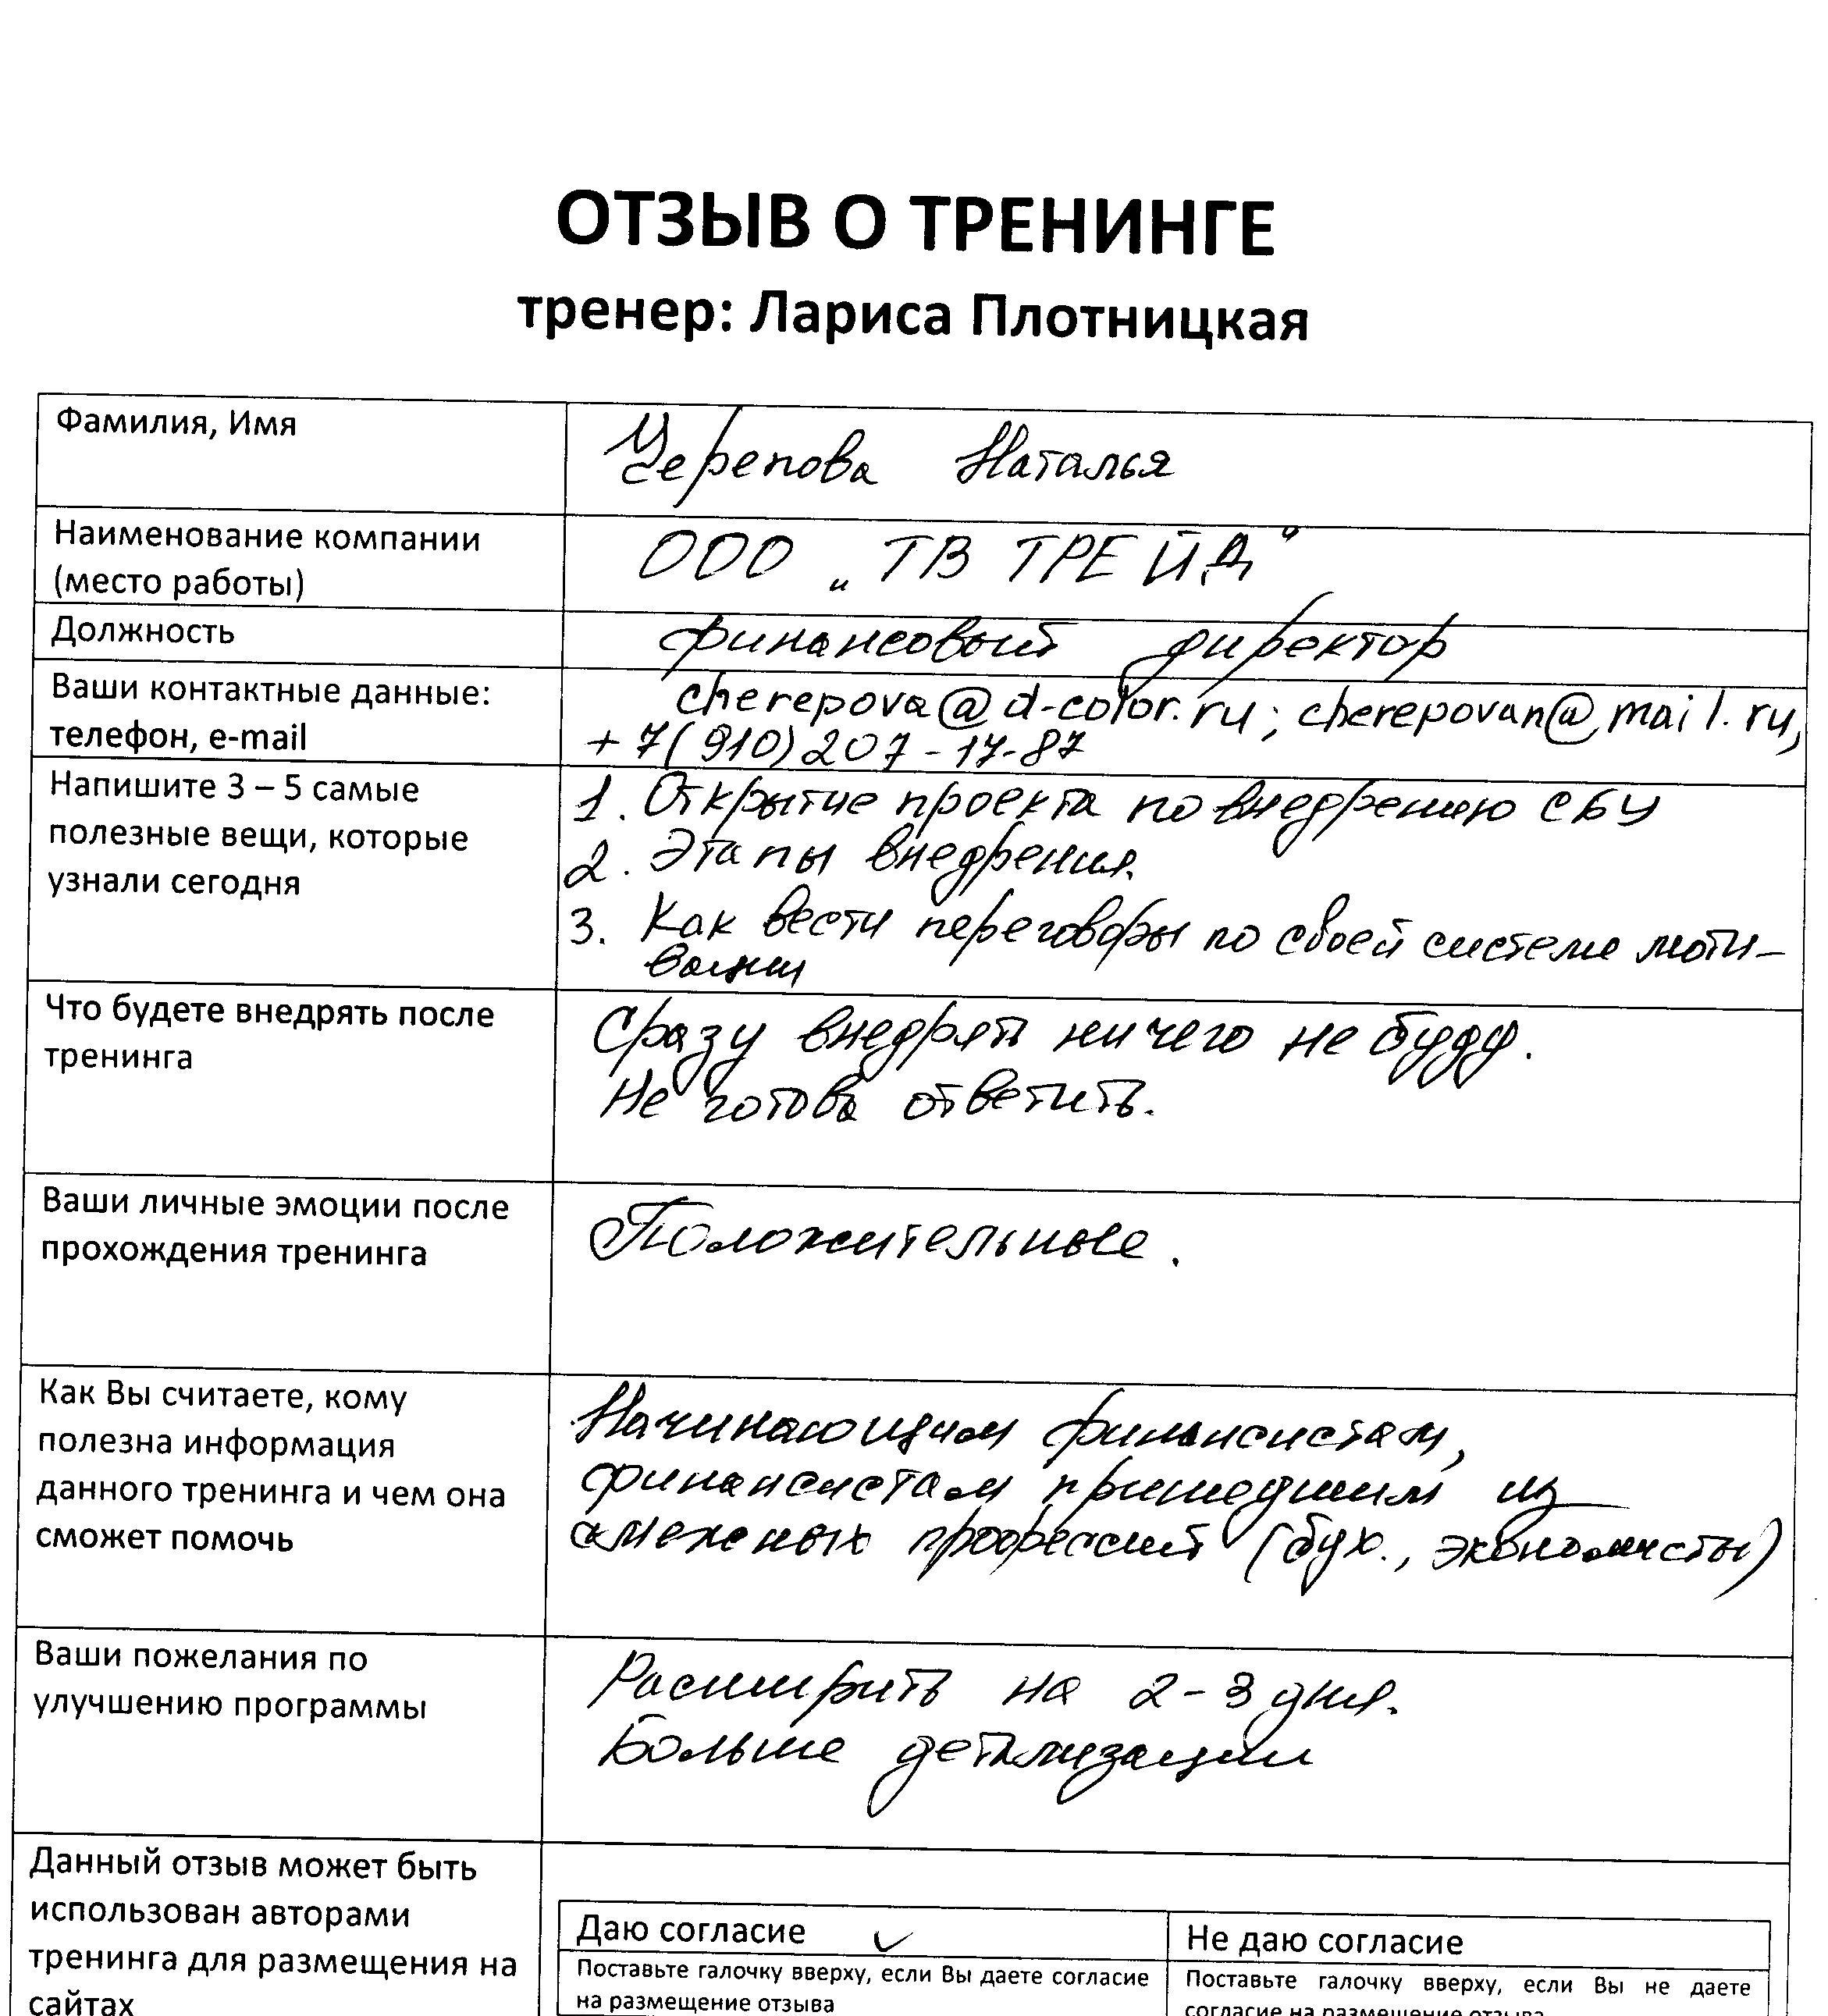 ОТЗЫВ О ТРЕНИНГЕ
тренер: Лариса Плотницкая
Фамилия, Имя
Черепова Наталья
Наименование компании
(место работы)
ООО „ТВ ТРЕЙД"
Должность
финансовый директор
Ваши контактные данные:
телефон, e-mail
cherepova@d-color.ru; cherepovan@mail.ru,
+7(910)207-17-87
Напишите 3 – 5 самые
полезные вещи, которые
узнали сегодня
1. Открытие проекта по внедрению СБУ
2. Этапы внедрения.
3. Как вести переговоры по своей системе моти-
вации
Что будете внедрять после
тренинга
Сразу внедрять ничего не буду.
Не готова ответить.
Ваши личные эмоции после
прохождения тренинга
Положительные.
Как Вы считаете, кому
полезна информация
данного тренинга и чем она
сможет помочь
Начинающим финансистам,
финансистам пришедшим из
смежных профессий (бух., экономисты)
Ваши пожелания по
улучшению программы
Расширить на 2-3 дня.
Больше детализации
Данный отзыв может быть
использован авторами
тренинга для размещения на
сайтах
Даю согласие ✓
Поставьте галочку вверху, если Вы даете согласие
на размещение отзыва
Не даю согласие
Поставьте галочку вверху, если Вы не даете
согласие на размещение отзыва